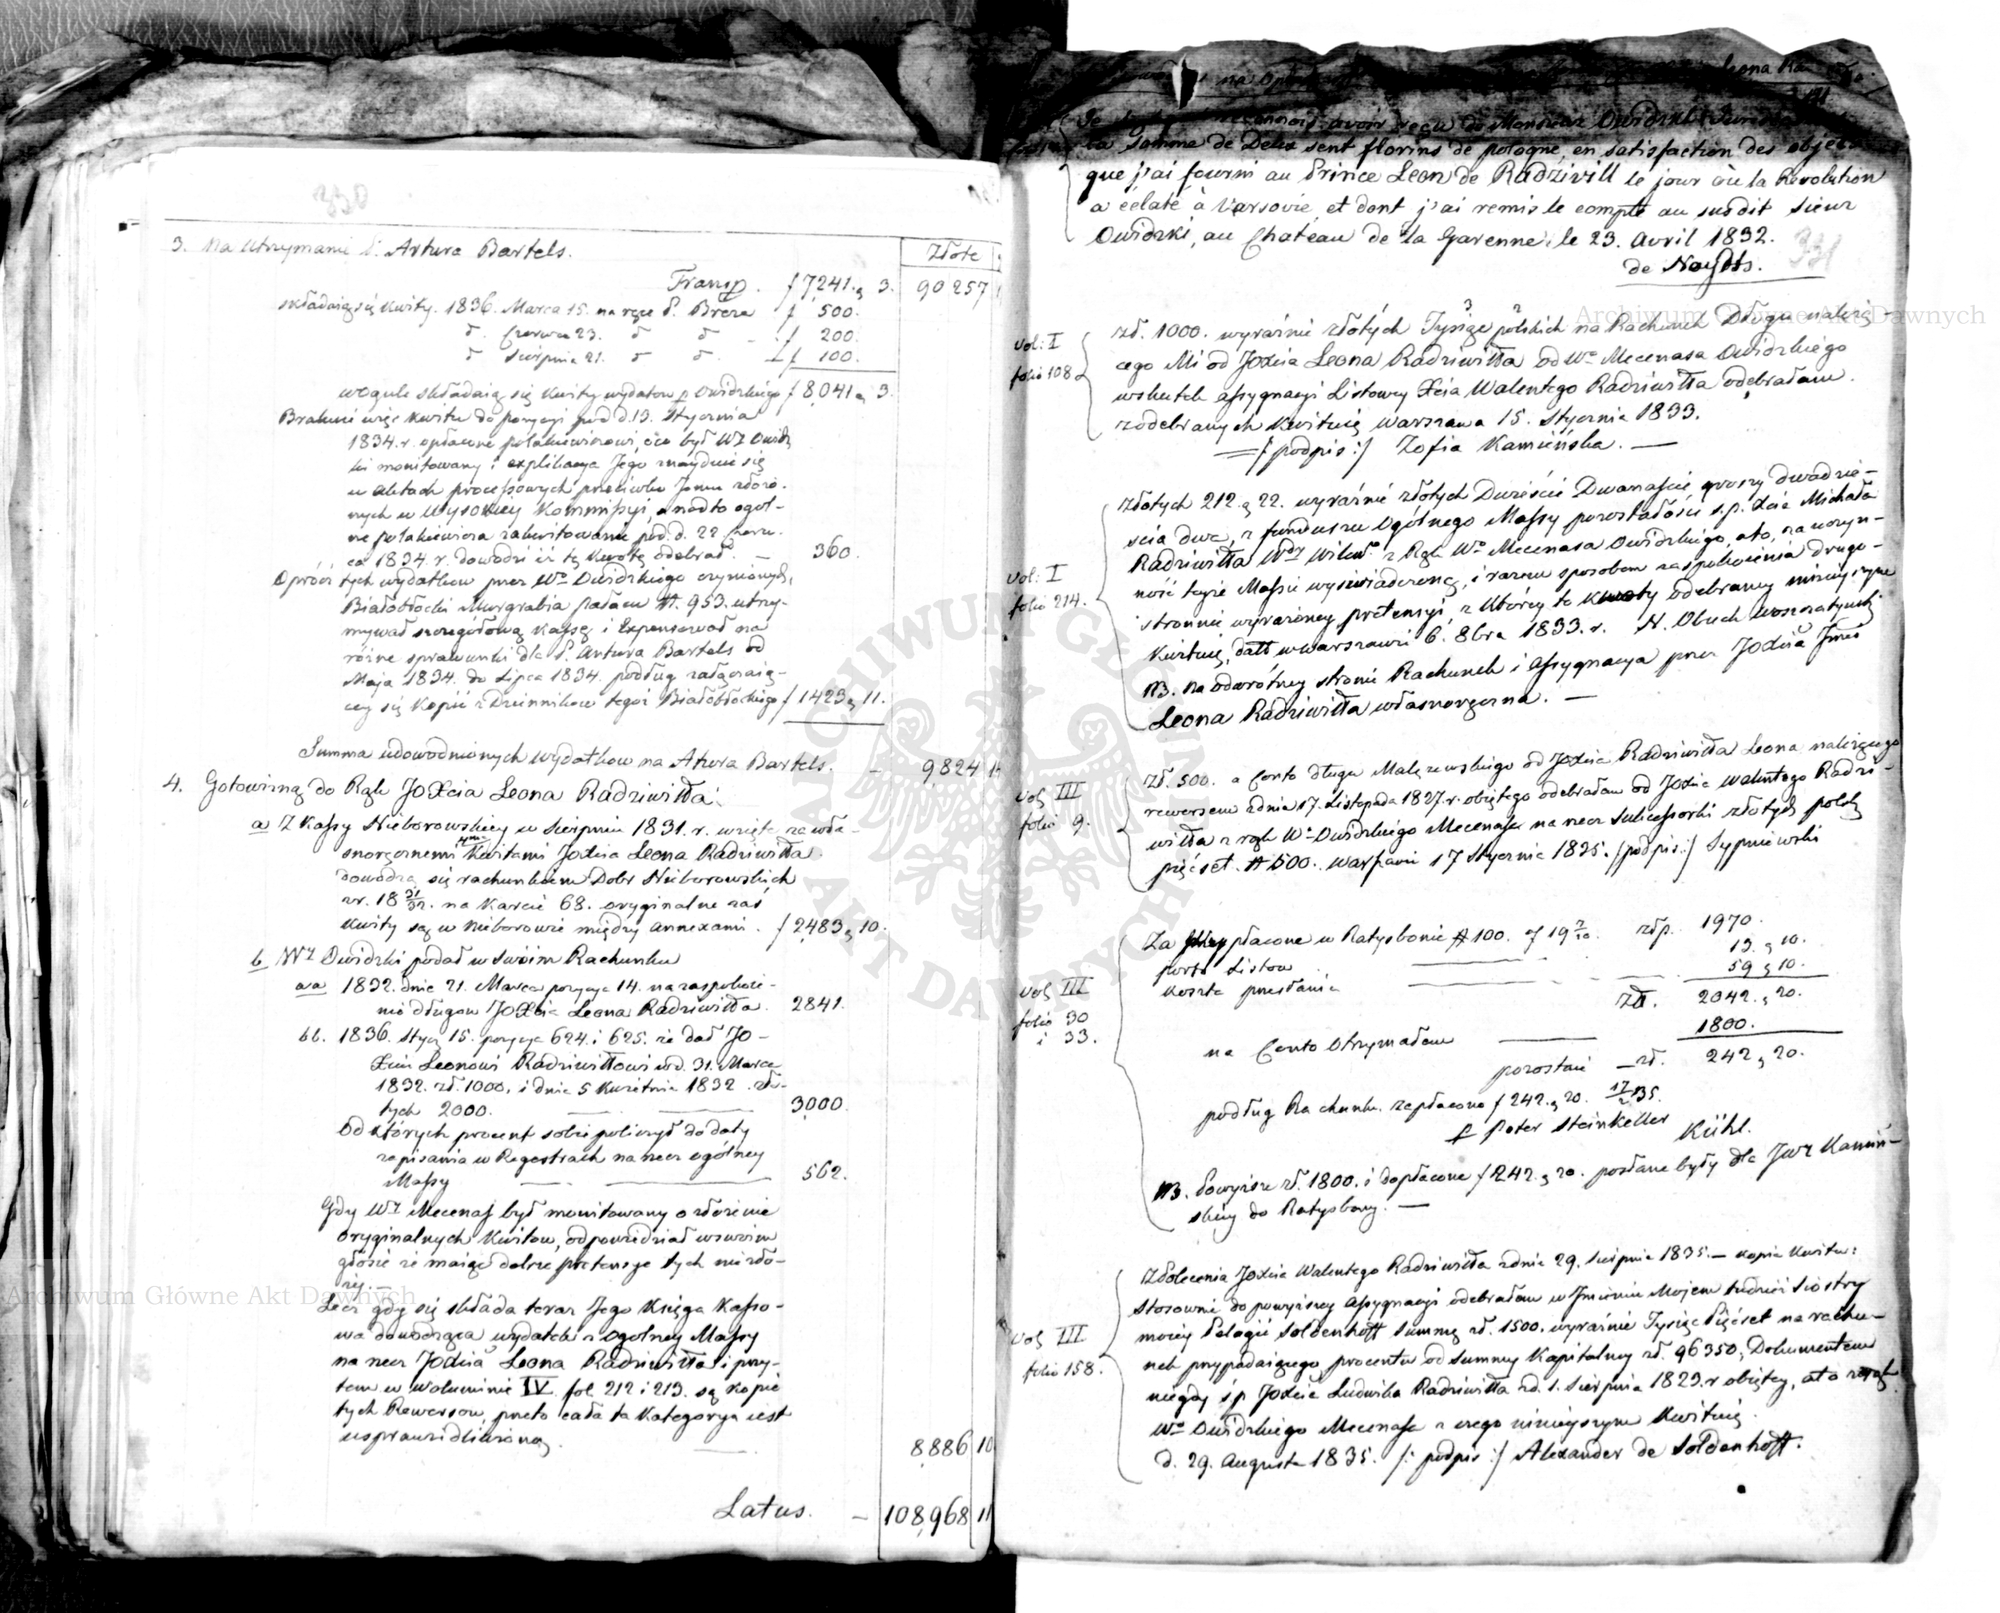 330
3. Na Utrzymanie P. Artura Bartels.
Złote
Transp. f 7241. g 3. 90257
składaią się Kwity. 1836. Marca 15. na ręce P. Breza f 500.
d° Czerwca 23. d° d° - f 200.
d° Sierpnia 21. d° d° - f 100.
wogule składaią się Kwity wydatow p Owidzkiego f 8041 g 3.
Braknie więc Kwitu do pozycyi pod d. 13. Stycznia
1834. r. opłacone Polakiewiczowi, o co był WJ Owidz
ki monitowany i explikacya Jego znayduie się
w Aktach processowych przeciwko Jemu złożo-
nych w Wysokiey Kommissyi, a nadto ogól-
ne Polakiewicza zakwitowanie pod d. 22 Czerw-
ca 1834. r. dowodzi iż tę kwotę odebrał. — 360.
Oprócz tych wydatkow przez Wo Owidzkiego czynionych,
Białobłocki Murgrabia pałacu N. 953. utrzy-
mywał szczegółową Kassę i Expensował na
różne sprawunki dla P. Artura Bartels od
Maja 1834. do Lipca 1834. podług załączaią-
cey się Kopii z Dziennikow tegoż Białobłockiego f 1423 g 11.
Summa udowodnionych wydatkow na Atura Bartels. — 9,824 14
4. Gotowizną do Rąk JOXcia Leona Radziwiłła.
a Z Kassy Nieborowskiey w Sierpniu 1831. r. wzięte za wła-
snoręcznemi Kwitami JOXcia Leona Radziwiłła.
dowodzą się rachunkiem Dobr Nieborowskich
zr. 18 31/32. na Karcie 68. oryginalne zaś
Kwity są w Nieborowie między annexami. f 2,483 g 10.
b WJ Owidzki podał w swoim Rachunku
aa 1832. dnia 21. Marca pozycya 14. na zaspokoie-
nie długow JOXcia Leona Radziwiłła. 2841.
bb. 1836. Stycz 15. pozycya 624. i 625. że dał JO-
Xciu Leonowi Radziwiłłowi w d. 31. Marca
1832. zł. 1000. i dnia 5 Kwietnia 1832. zło-
tych 2000. — — 3,000.
Od których procent sobie policzył do daty
zapisania w Regestrach na rzecz ogólney
Massy — — 562.
Gdy WJ Mecenas był monitowany o złożenie
Oryginalnych Kwitow, odpowiedział w swoim
głosie że maiąc dalsze pretensye tych nie zło-
ży. —
Lecz gdy się składa teraz Jego Księga Kasso-
wa dowodząca wydatek z Ogolney Massy
na rzecz JOXcia Leona Radziwiłła i przy-
tem w woluminie IV. fol. 212 i 213. są kopie
tych Rewersow, przeto cała ta Kategorya iest
usprawiedliwioną. — 8,886 10
Latus. — 108,968 11
na
Leona
avoir reçu de Monsieur Owidzki
la Somme de Deux sent florins de pologne, en satisfaction des objets
que j'ai fourni au Prince Leon de Radzivill le jour où la Revolution
a éclaté à Varsovie, et dont j'ai remis le compte au susdit Sieur
Owidzki, au Chateau de la Garenne, le 23. Avril 1832.
331
vol: I
folio 108
zł. 1000. wyraźnie złotych Tysiąc polskich na Rachunek Długu należą-
cego Mi od JOXcia Leona Radziwiłła od Wo Mecenasa Owidzkiego
wskutek assygnacyi Listowey Xcia Walentego Radziwiłła odebrałam.
z odebranych Kwituię Warszawa 15. Stycznia 1833.
/: podpis :/ Zofia Kamieńska. —
Vol: I
folio 214.
Złotych 212. g 22. wyraźnie złotych Dwieście Dwanaście groszy dwadzie-
ścia dwa, z funduszu Ogólnego Massy pozostałości s. p. Xcia Michała
Radziwiłła Wdy Wileńo z Rąk Wo Mecenasa Owidzkiego, a to, na uczyn-
ność teyże Massie wyświadczoną, i razem sposobem zaspokoienia drugo-
stronnie wyrażoney pretensyi, z którey to kwoty odebraney ninieyszym
Kwituię, datt w Warszawie 6. 8bra 1833. r.
NB. na odwrótney stronie Rachunek i Assygnacya przez JOXcia Jmci
Leona Radziwiłła własnoręczna. —
Vol III
folio 9.
Zł. 500. a Conto długu Małęzewskiego od JOXcia Radziwiłła Leona należącego
rewersem zdnia 17. Listopada 1827. r. obiętego odebrałam od JOXcia Walentego Radzi-
wiłła z rąk Wo Owidzkiego Mecenasa na rzecz Sukcessorki złotych polsk
pięćset. N 500. Warszawie 17 Stycznia 1835. /podpis:/ Sypniewski
Vol III
folio 30
i 33.
Za płacone w Ratysbonie # 100. f 19 złp. 1970.
porto Listow — 13. g 10.
koszta przesłania — 59 g 10.
Zł. 2042. g 20.
na Conto Otrzymałem — 1800.
pozostaie — zł. 242 g 20.
podług Rachunku zapłacono f 242. g 20. 17/2 35.
p Peter Steinkeller
Kühl.
NB. Powyższe zł. 1800. i dopłacone f 242. g 20. posłane były dla JWJ Kamiń-
skiey do Ratysbony. —
Vol III
folio 158.
Z polecenia JOXcia Walentego Radziwiłła zdnia 29. Sierpnia 1835. — kopia Kwitu:
Stosownie do powyższey Assygnacyi odebrałem w Imieniu Mojem tudzież Siostry
moiey Pelagii Soldenhoff Summę zł. 1500. wyraźnie Tysiąc Pięćset na rachu-
nek przypadaiącego procentu od Summy Kapitalney zł. 96350. Dokumentem
niegdy ś. p. JOXcia Ludwika Radziwiłła z d. 1. Sierpnia 1823. r obiętey, a to z rąk
Wo Owidzkiego Mecenasa z czego ninieyszym Kwituię.
d. 29. Augusta 1835. /: podpis :/ Alexander de Soldenhoff.
Archiwum Główne Akt Dawnych
Archiwum Główne Akt Dawnych
ARCHIWUM GŁÓWNE AKT DAWNYCH